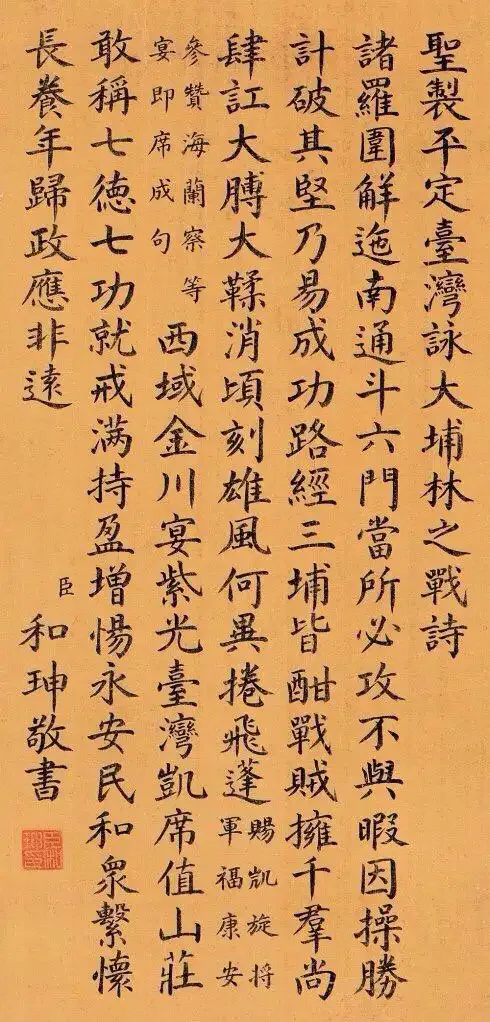 聖製平定臺灣詠大埔林之戰詩
諸羅圍解迤南通斗六門當所必攻不與暇因操勝
計破其堅乃易成功路經三埔皆酣戰賊擁千羣尚
肆訌大膊大鞣消頃刻雄風何異捲飛蓬
賜凱旋將
軍福康安
參贊海蘭察等
宴即席成句
西域金川宴紫光臺灣凱席值山莊
敢稱七徳七功就戒滿持盈增惕永安民和衆繫懷
長養年歸政應非遠
臣和珅敬書